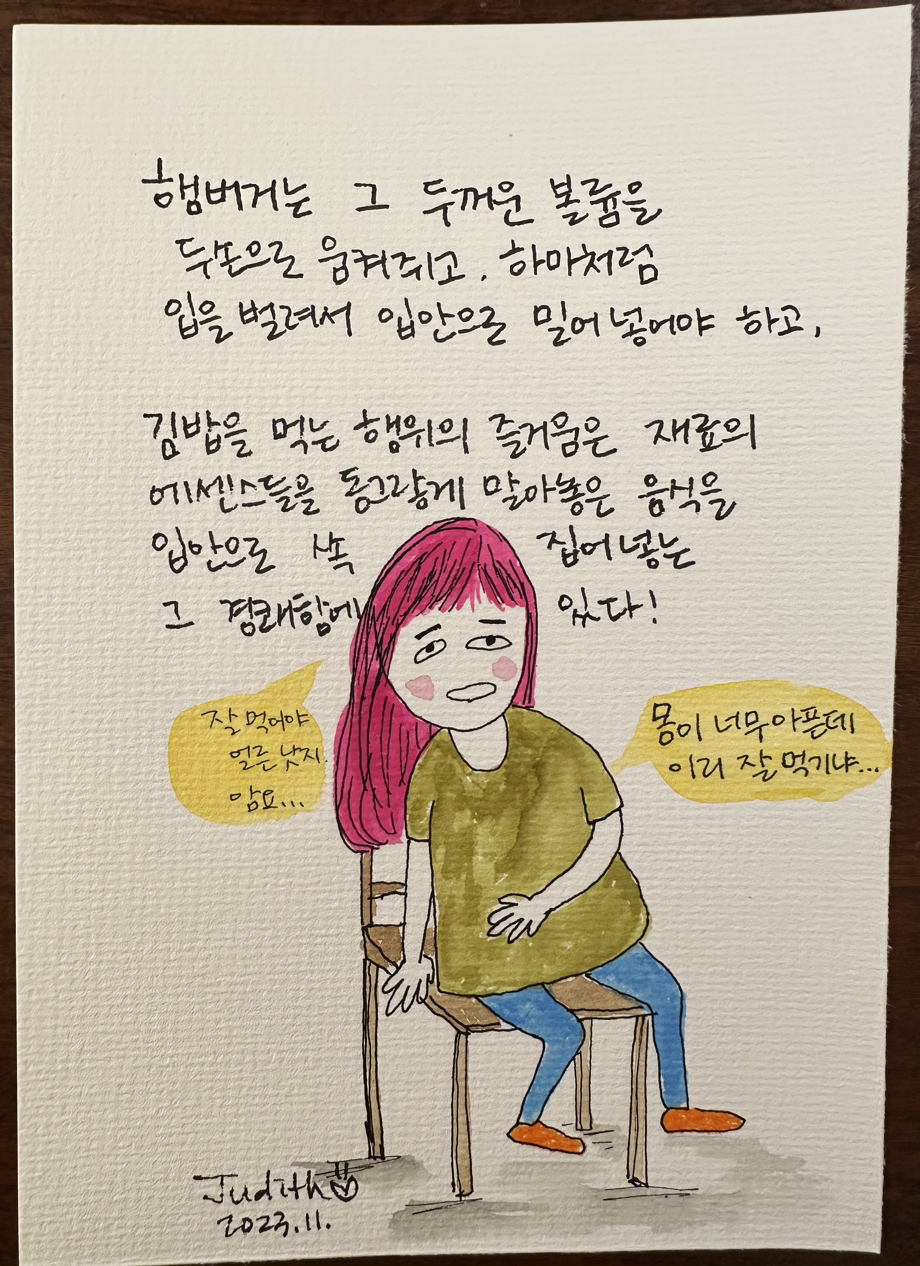 햄버거는 그 두꺼운 볼륨을
두손으로 움켜쥐고, 하마처럼
입을 벌려서 입안으로 밀어 넣어야 하고,
김밥을 먹는 행위의 즐거움은 재료의
에센스들을 동그랗게 말아놓은 음식을
입안으로 쏙 집어 넣는
그 경쾌함에 있다!
잘 먹어야
얼른 낫지.
암요...
몸이 너무 아픈데
이리 잘 먹기냐...
Judith
2023.11.